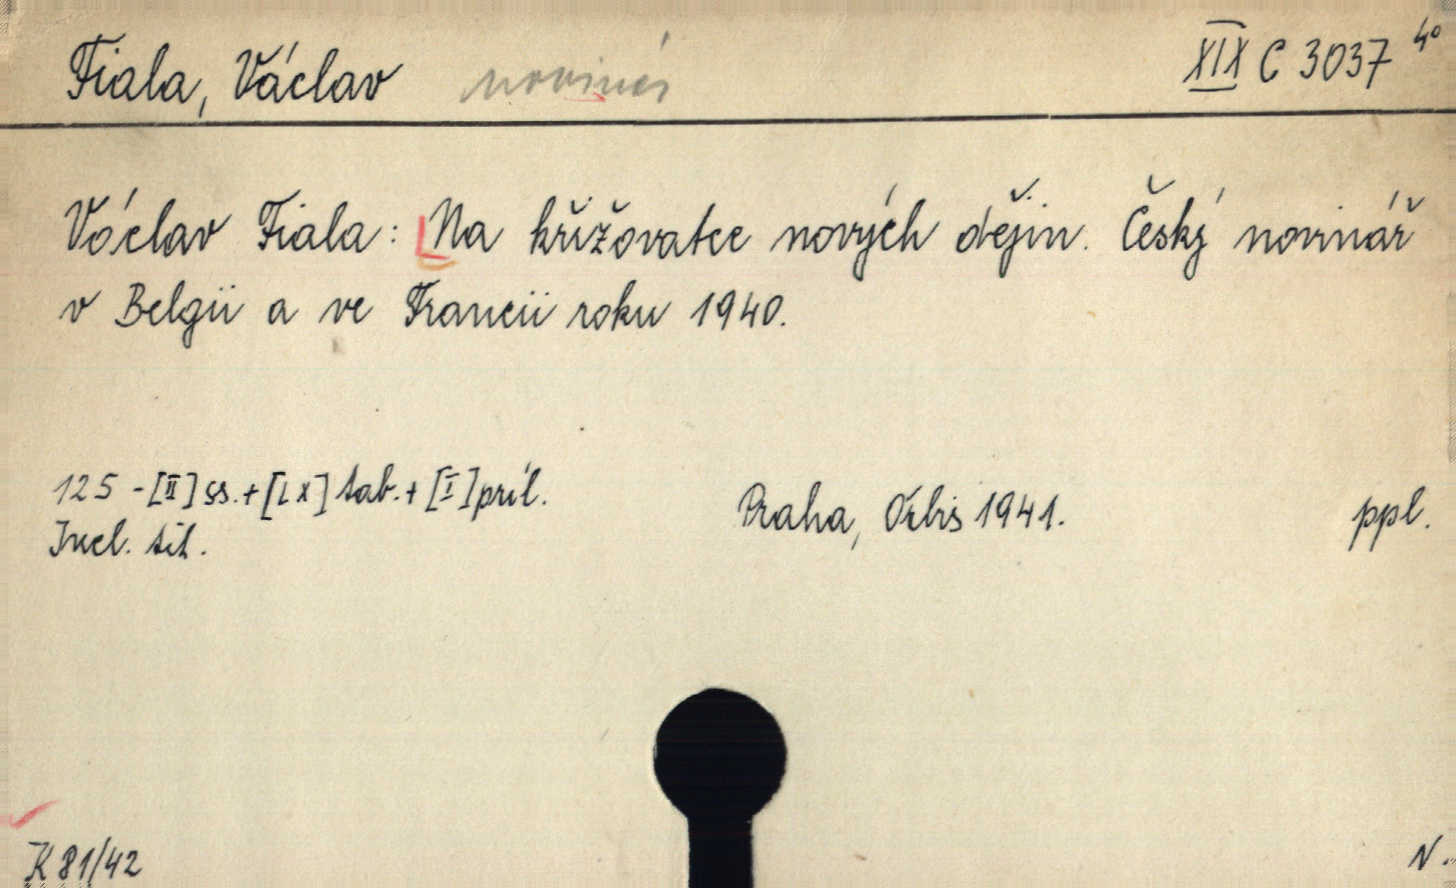 Fiala, Václav novinář XIX C 3037 4°
Václav Fiala: Na křižovatce nových dějin. Český novinář
v Belgii a ve Francii roku 1940.
125 - [II] ss. + [IX] tab. + [I] príl. Praha, Orbis 1941. ppl.
Incl. tit.
K 81/42 N.